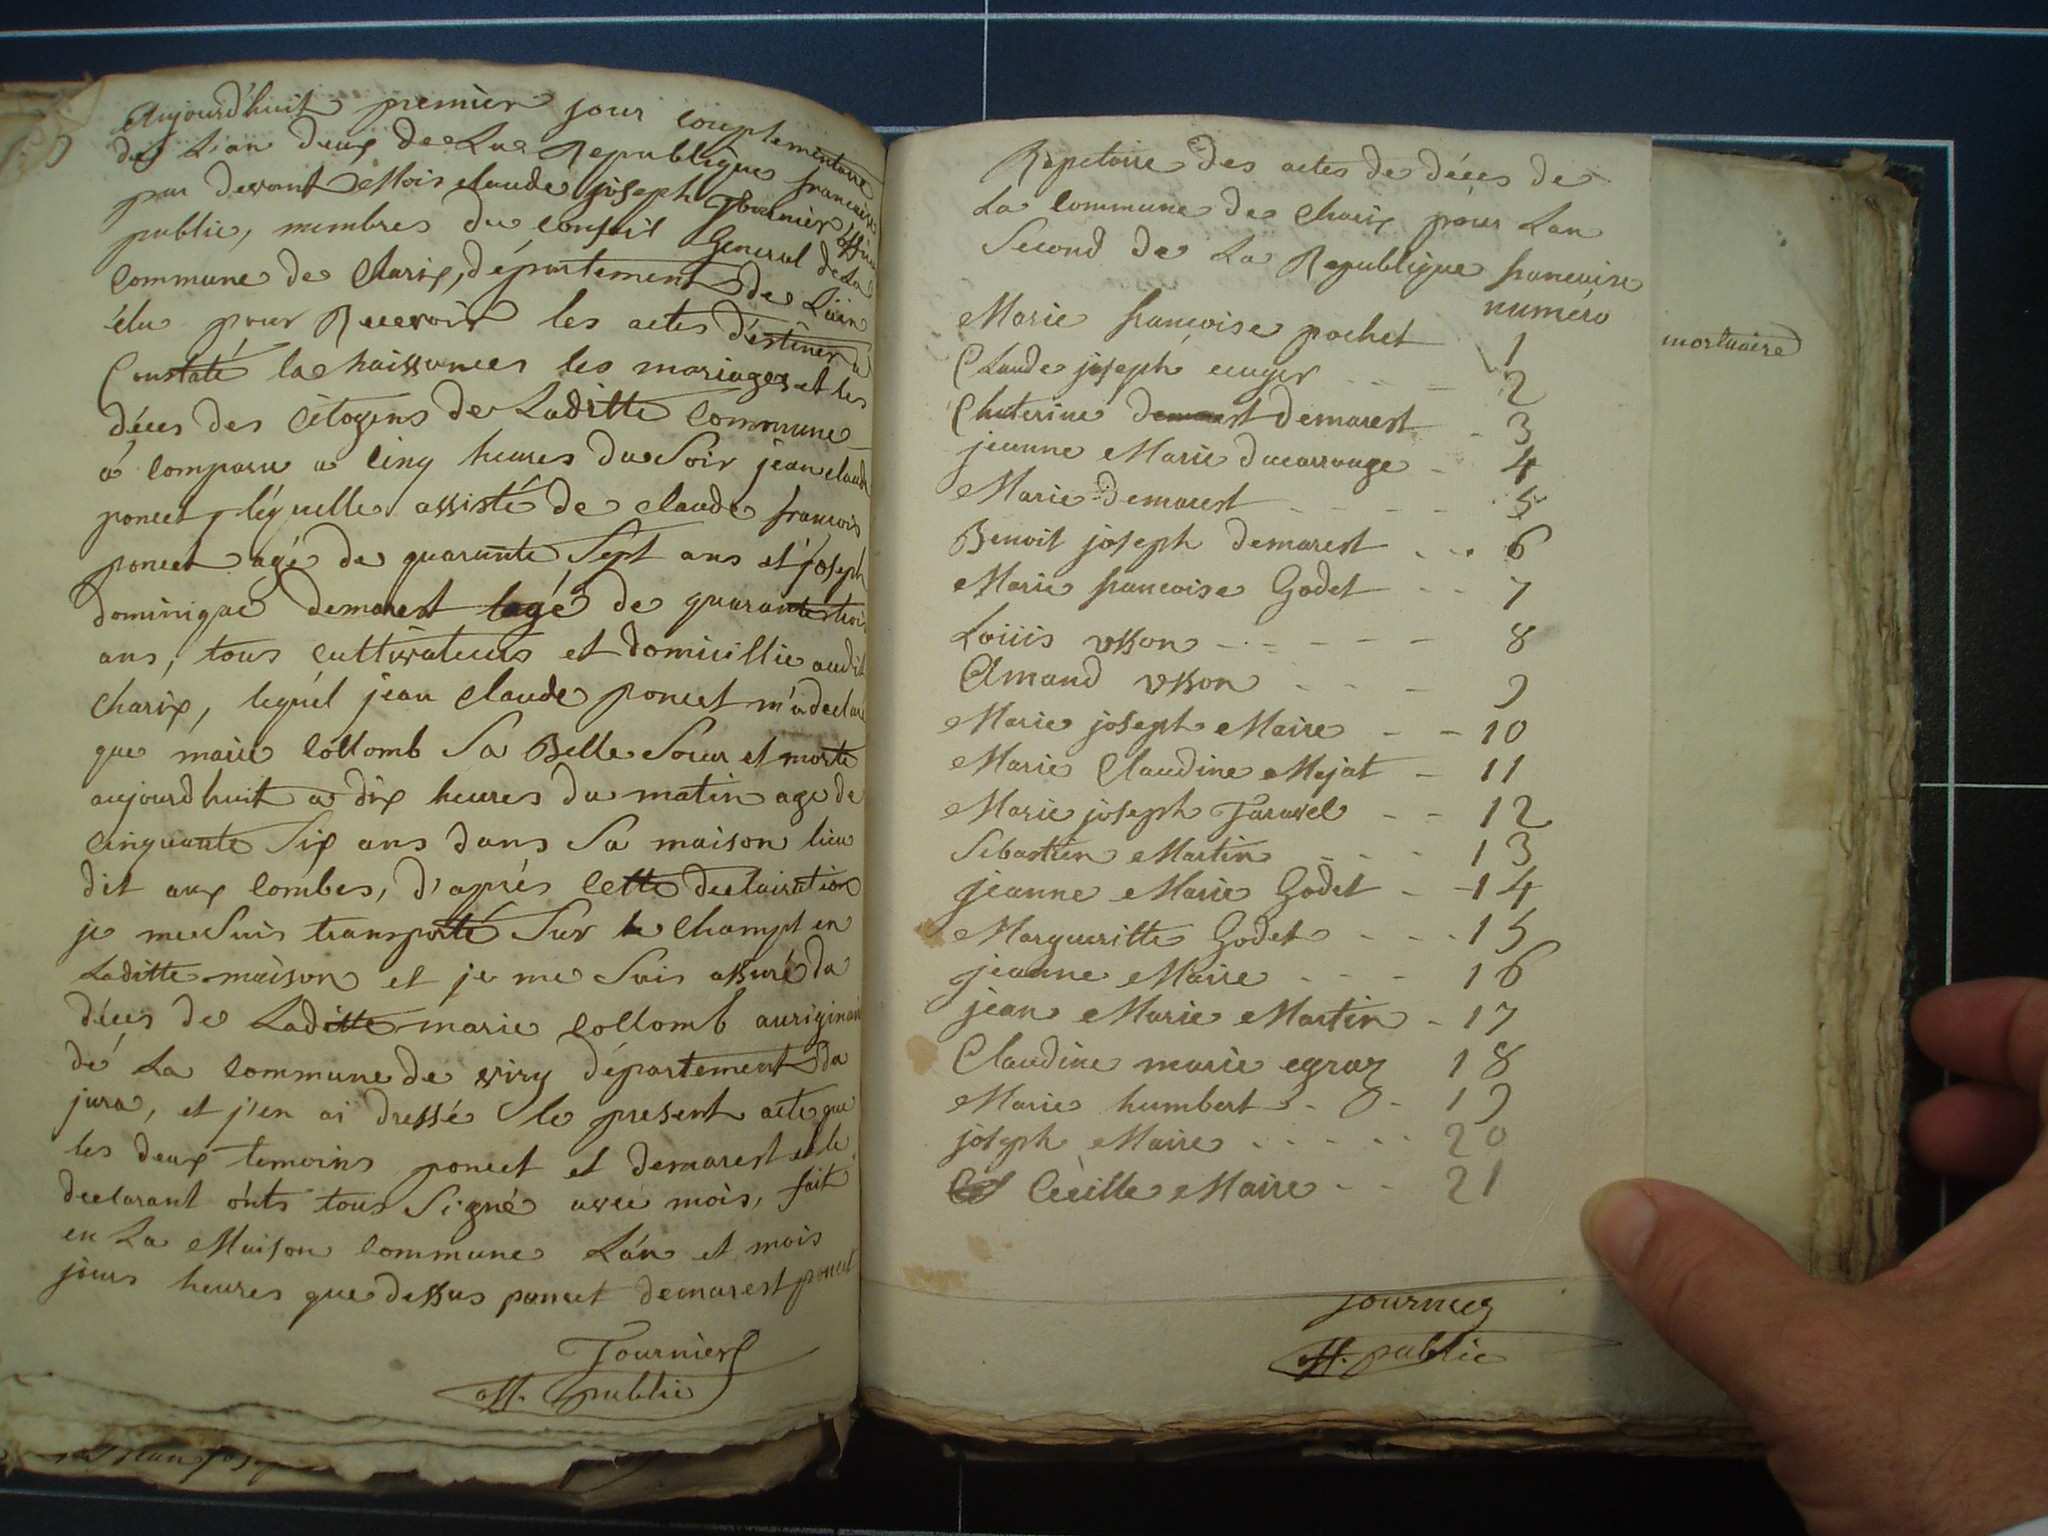 Aujourd'huit premier jour complementaire
de L'an deux de La Republique francaise
par devant Mois claude joseph tournier officier
public, membres du conseil General de La
Commune de Charix, département de L'ain
élu pour Recevoir les actes déstiner à
Constaté la naissances les mariages et les
déces des Citoyens de Laditte Commune
à comparu a cinq heures du Soir jean claude
poncet, léquelle assisté de claude francois
poncet agé de quarante Sept ans et joseph
dominique demarest agé de quarante trois
ans, tous cultivateurs et domicillie audit
Charix, lequél jean Claude poncet m'a declaré
que marie collomb Sa Belle Soeur et morte
aujourdhuit a dix heures du matin age de
Cinquante Six ans dans Sa maison lieu
dit aux combes, d'aprés cette declairation
je me Suis transporté Sur le Champt en
Laditte maison et je me Suis assuré du
déces de Laditte marie collomb auriginaire
dé La commune de viry département du
jura, et j'en ai dressé le present acte que
les deux temoins poncet et demarest et le
declarant onts tous Signé avec mois, fait
en La Maison commune L'an et mois
jours heures que dessus poncet demarest poncet
Tournier
off. public
Repetoire des actes de déces de
La Commune de Charix pour Lan
Second de La Republique francaise
numéro
Marie francoise pochet 1
Claude joseph ecuyer 2
Chaterine demarest demarest 3
jeanne Marie ducarrouge 4
Marie demarest 5
Benoit joseph demarest 6
Marie francoise Godet 7
Loiiis usson 8
Amand usson 9
Marie joseph Maire 10
Marie Claudine Mejat 11
Marie joseph Taravel 12
Sebastien Martin 13
jeanne Marie Godet 14
Margueritte Godet 15
jeanne Maire 16
jean Marie Martin 17
Claudine marie egraz 18
Marie humbert 19
joseph Maire 20
Cècille Maire 21
Tournier
off. public
mortuaire